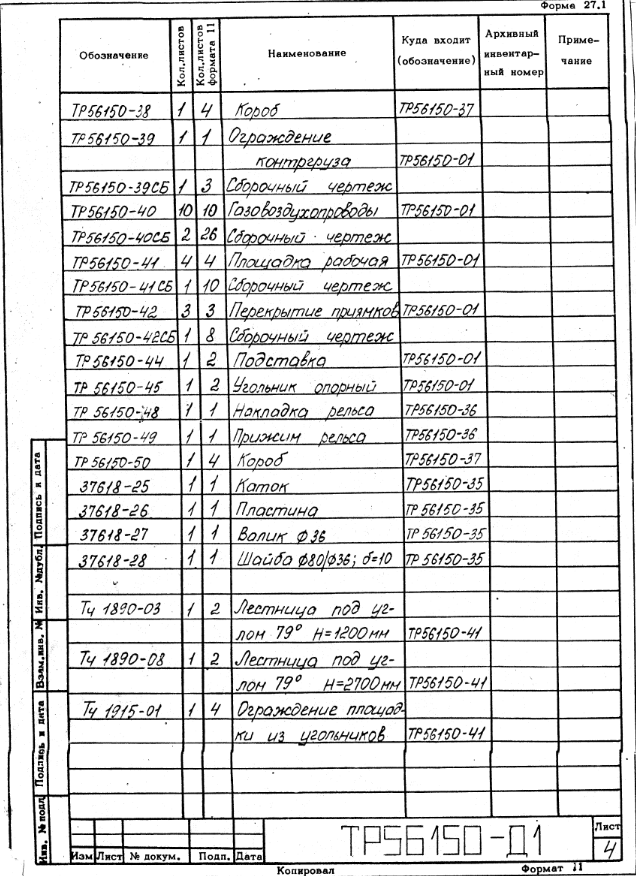 Форма 27.1
Обозначение | Кол.листов | Кол.листов формата 11 | Наименование | Куда входит (обозначение) | Архивный инвентарный номер | Примечание
ТР56150-38 1 4 Короб ТР56150-37
ТР56150-39 1 1 Ограждение
контргруза ТР56150-01
ТР56150-39СБ 1 3 Сборочный чертеж
ТР56150-40 10 10 Газовоздухопроводы ТР56150-01
ТР56150-40СБ 2 26 Сборочный чертеж
ТР56150-41 4 4 Площадка рабочая ТР56150-01
ТР56150-41СБ 1 10 Сборочный чертеж
ТР56150-42 3 3 Перекрытие приямков ТР56150-01
ТР 56150-42СБ 1 8 Сборочный чертеж
ТР 56150-44 1 2 Подставка ТР56150-01
ТР 56150-45 1 2 Угольник опорный ТР56150-01
ТР 56150-48 1 1 Накладка рельса ТР56150-36
ТР 56150-49 1 1 Прижим рельса ТР56150-36
ТР 56150-50 1 4 Короб ТР56150-37
37618-25 1 1 Каток ТР56150-35
37618-26 1 1 Пластина ТР 56150-35
37618-27 1 1 Валик Ф36 ТР 56150-35
37618-28 1 1 Шайба ф80/ф36; δ=10 ТР 56150-35
Тч 1890-03 1 2 Лестница под уг-
лом 79° Н=1200мм ТР56150-41
Тч 1890-08 1 2 Лестница под уг-
лом 79° Н=2700мм ТР56150-41
Тч 1915-01 1 4 Ограждение площад-
ки из угольников ТР56150-41
Подпись и дата
Инв. №дубл.
Взам.инв. №
Подпись и дата
Инв. № подл
Изм Лист № докум. Подп. Дата
ТР56150-Д1
Лист
4
Копировал Формат 11